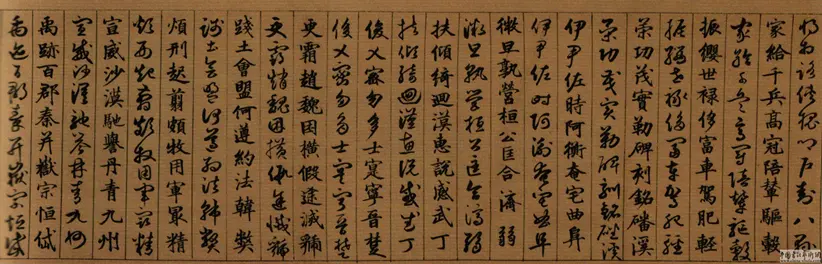 將相路俠槐卿戶封八縣
家給千兵高冠陪輦驅轂
家給千兵高冠陪輦驅轂
振纓世祿侈富車駕肥輕
振纓世祿侈富車駕肥輕
策功茂實勒碑刻銘磻溪
策功茂實勒碑刻銘磻溪
伊尹佐時阿衡奄宅曲阜
伊尹佐時阿衡奄宅曲阜
微旦孰營桓公匡合濟弱
微旦孰營桓公匡合濟弱
扶傾綺迴漢惠說感武丁
扶傾綺迴漢惠說感武丁
俊乂密勿多士寔寧晉楚
俊乂密勿多士寔寧晉楚
更霸趙魏困橫假途滅虢
更霸趙魏困橫假途滅虢
踐土會盟何遵約法韓弊
踐土會盟何遵約法韓弊
煩刑起翦頗牧用軍最精
煩刑起翦頗牧用軍最精
宣威沙漠馳譽丹青九州
宣威沙漠馳譽丹青九州
禹跡百郡秦并嶽宗恒岱
禹跡百郡秦并嶽宗恒岱